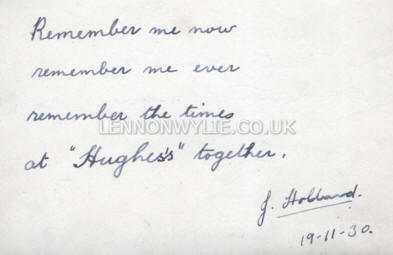 Remember me now
remember me ever
remember the times
LENNONWYLIE.CO.UK
at "Hughes's" together.
J. Holland.
19-11-30.